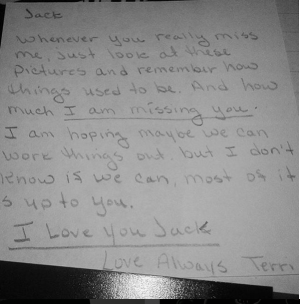 Jack
Whenever you really miss
me, Just look at these
Pictures and remember how
things used to be. And how
much I am missing you.
I am hoping maybe we can
work things out, but I don't
know if we can, most of it
s up to you.
I Love you Jack
Love Always Terri